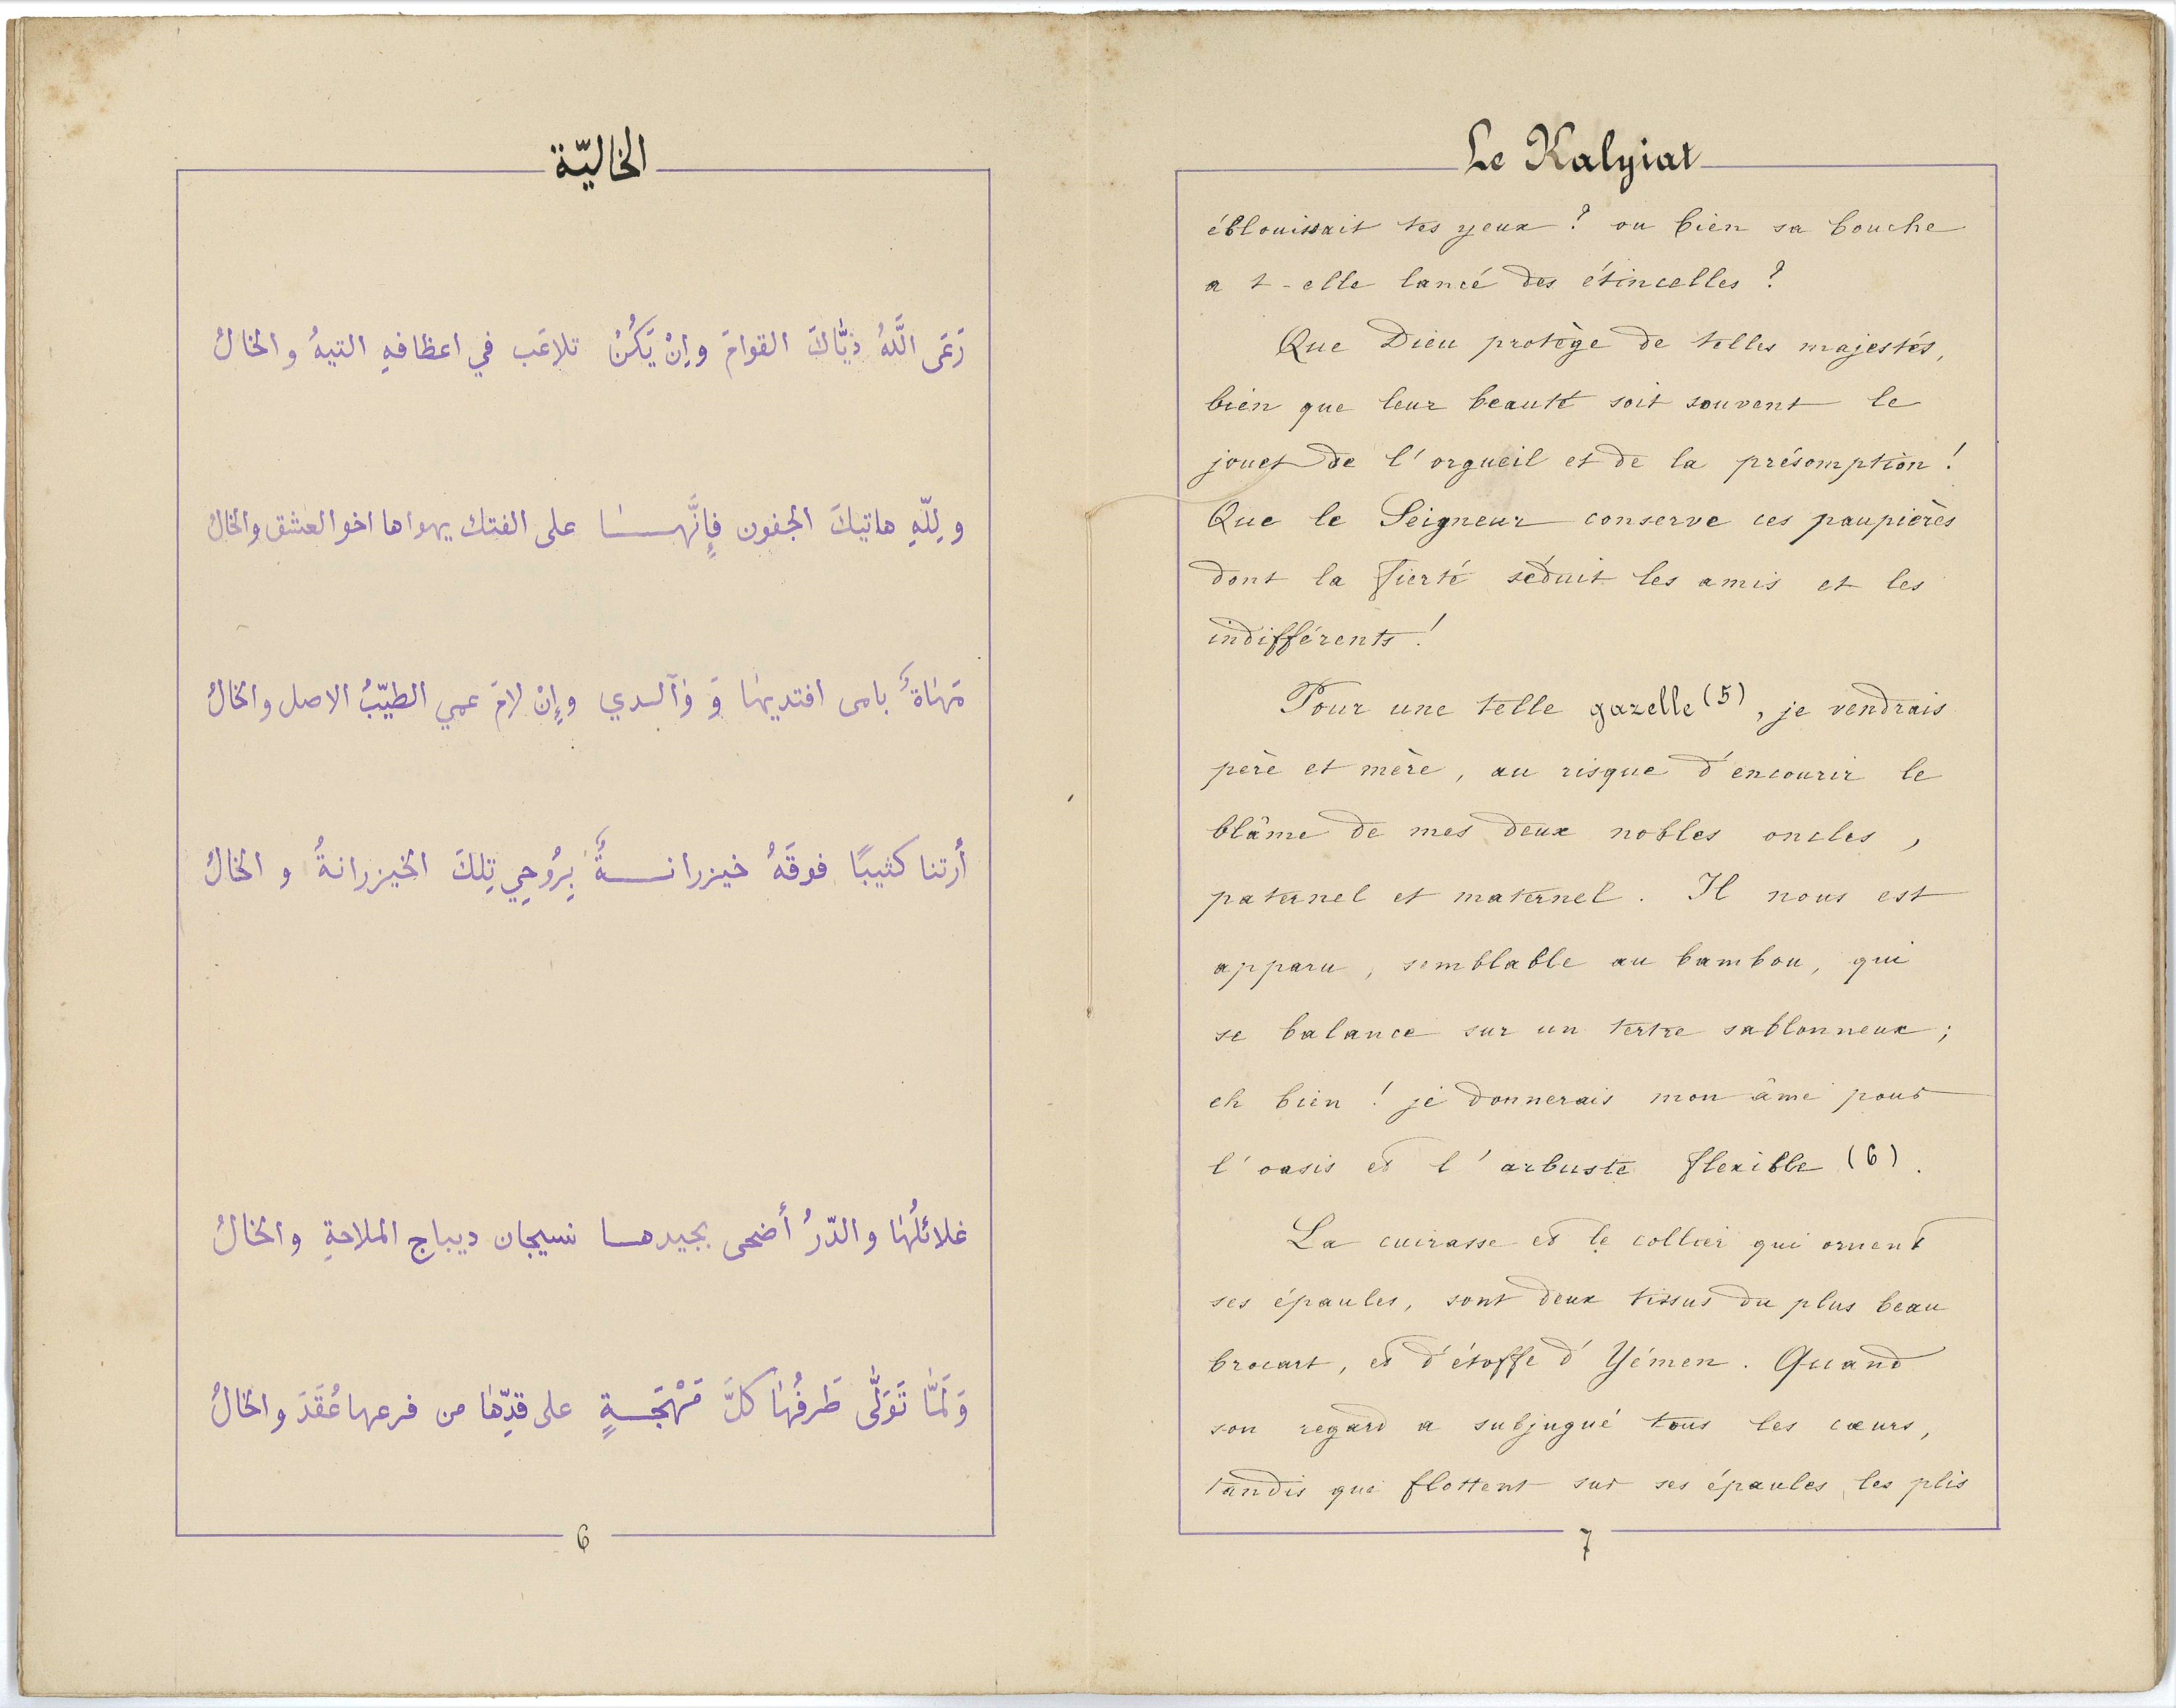 الخاليّة
رَعَى اللَّهُ ذيَّاكَ القوامَ وإنْ يَكُنْ تلاعَب في اعظافهِ التيهُ والخالُ
وللّهِ هاتيكَ الجفون فإنَّهـــا على الفتك يهواها اخو العشق والخالُ
مَهَاةٌ بامى افتديها وَ وَآلدي وإنْ لامَ عمي الطيّبُ الاصل والخالُ
أرتنا كثيبًا فوقَهُ خيزرانــةٌ بِرُوحِي تِلكَ الخيزرانةُ و الخالُ
غلائلُها والدّرُ أضحى بجيدهـا نسيجان ديباج الملاحةِ والخالُ
وَلَمَّا تَوَلَّى طَرفُها كلَّ مَهْجَـةٍ على قدِّها من فرعها عُقَدَ والخالُ
6
Le Kalyiat
éblouissait tes yeux ? ou bien sa bouche
a t-elle lancé des étincelles ?
Que Dieu protège de telles majestés,
bien que leur beauté soit souvent le
jouet de l'orgueil et de la présomption !
Que le Seigneur conserve ces paupières
dont la fierté séduit les amis et les
indifférents !
Pour une telle gazelle (5), je vendrais
père et mère, au risque d'encourir le
blâme de mes deux nobles oncles,
paternel et maternel. Il nous est
apparu, semblable au bambou, qui
se balance sur un tertre sablonneux ;
eh bien ! je donnerais mon âme pour
l'oasis et l'arbuste flexible (6).
La cuirasse et le collier qui ornent
ses épaules, sont deux tissus du plus beau
brocart, et d'étoffe d'Yémen. Quand
son regard a subjugué tous les cœurs,
tandis que flottent sur ses épaules, les plis
7